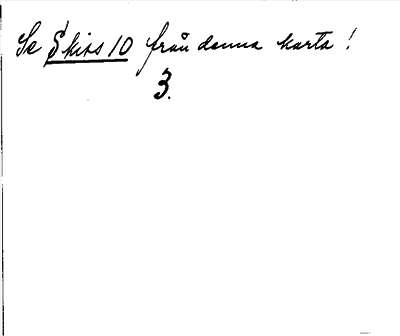 Se Skiss 10 från denna karta!
3.